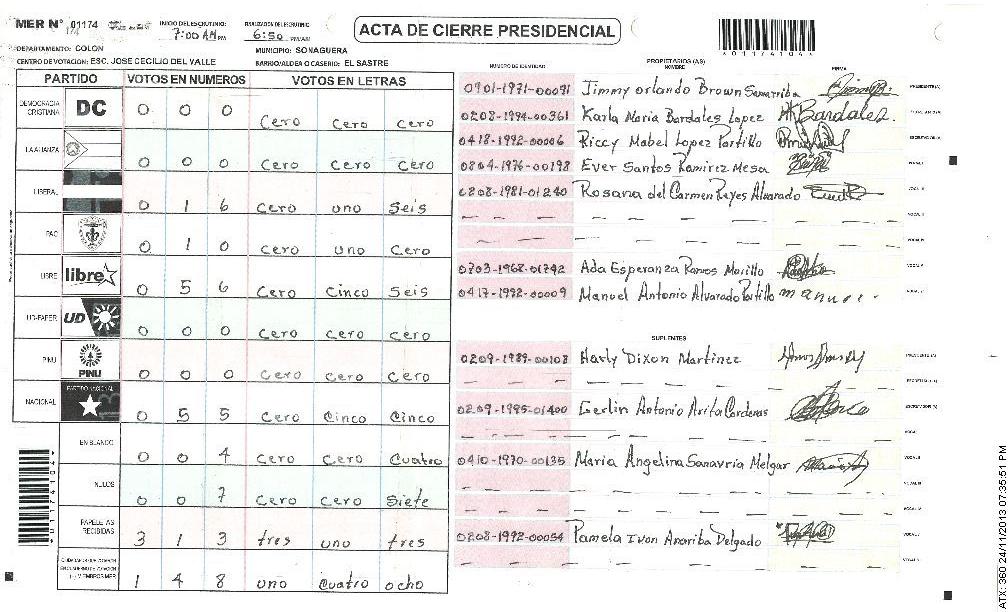 MER N° 01174
174
INICIO DEL ESCRUTINIO: 7:00 AM PM
FINALIZACION DEL ESCRUTINIO: 6:50 PM/AM
ACTA DE CIERRE PRESIDENCIAL
*01174104*
DEPARTAMENTO: COLON
MUNICIPIO: SONAGUERA
CENTRO DE VOTACION: ESC. JOSE CECILIO DEL VALLE
BARRIO/ALDEA O CASERIO: EL SASTRE
PARTIDO VOTOS EN NUMEROS VOTOS EN LETRAS
DEMOCRACIA CRISTIANA DC 0 0 0 Cero Cero cero
LA ALIANZA 0 0 0 Cero Cero Cero
LIBERAL 0 1 6 Cero uno Seis
PAC 0 1 0 Cero uno Cero
LIBRE libre 0 5 6 Cero Cinco Seis
UD-FAPER UD 0 0 0 Cero cero cero
PINU PINU 0 0 0 Cero Cero Cero
NACIONAL PARTIDO NACIONAL 0 5 5 Cero Cinco Cinco
EN BLANCO 0 0 4 Cero Cero Cuatro
NULOS 0 0 7 Cero Cero Siete
PAPELETAS RECIBIDAS 3 1 3 tres uno tres
1 4 8 uno Cuatro ocho
*01174104*
NUMERO DE IDENTIDAD PROPIETARIOS (AS) NOMBRE FIRMA
0901-1971-00091 Jimmy Orlando Brown Samarriba PRESIDENTE(A)
0208-1994-00361 Karla Maria Bardales Lopez Bardales.
0418-1992-00006 Riccy Mabel Lopez Portillo
0804-1976-00198 Ever Santos Ramirez Mesa
0208-1981-01240 Rosana del Carmen Reyes Alvarado
0703-1968-01742 Ada Esperanza Ramos Morillo
0417-1992-00009 Manuel Antonio Alvarado Portillo manuel
SUPLENTES
0209-1989-00108 Harly Dixon Martinez
0209-1995-01400 Gerlin Antonio Arita Carderas
0410-1970-00135 Maria Angelina Sanavria Melgar
0208-1992-00054 Pamela Ivon Anariba Delgado
ATX: 360 24/11/2013 07:35:51 PM